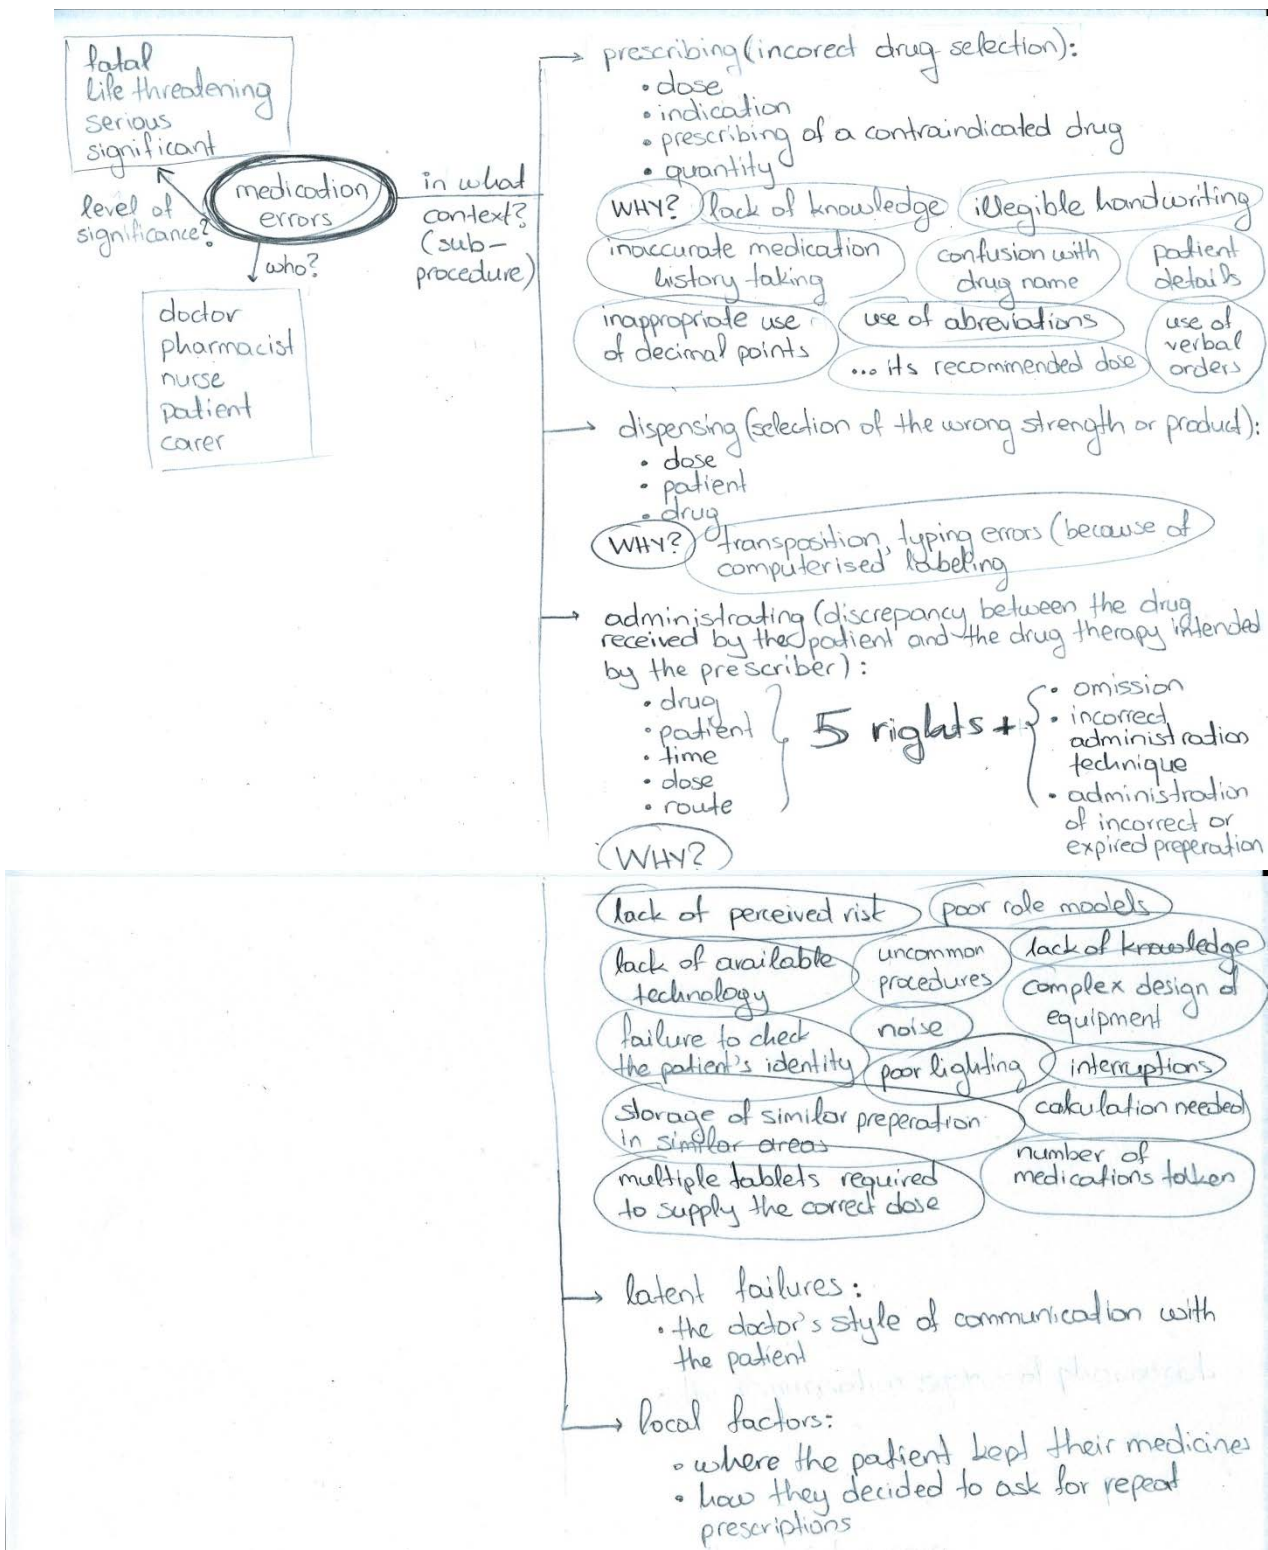 fatal
life threatening
serious
significant
level of
significance?
medication
errors
who?
doctor
pharmacist
nurse
patient
carer
in what
context?
(sub-
procedure)
prescribing (incorect drug selection):
• dose
• indication
• prescribing of a contraindicated drug
• quantity
WHY? lack of knowledge illegible handwriting
inaccurate medication
history taking
confusion with
drug name
patient
details
inappropriate use
of decimal points
use of abreviations
... its recommended dose
use of
verbal
orders
dispensing (selection of the wrong strength or product):
• dose
• patient
• drug
WHY? transposition, typing errors (because of
computerised labeling
administrating (discrepancy between the drug
received by the patient and the drug therapy intended
by the prescriber):
• drug
• patient
• time
• dose
• route
5 rights +
• omission
• incorrect
administration
technique
• administration
of incorrect or
expired preperation
WHY?
lack of perceived risk poor role models
lack of available
technology
uncommon
procedures
lack of knowledge
complex design of
equipment
failure to check
the patient's identity
noise
poor lighting
interruptions
storage of similar preperation
in similar areas
calculation needed
multiple tablets required
to supply the correct dose
number of
medications taken
latent failures:
• the doctor's style of communication with
the patient
local factors:
• where the patient kept their medicines
• how they decided to ask for repeat
prescriptions